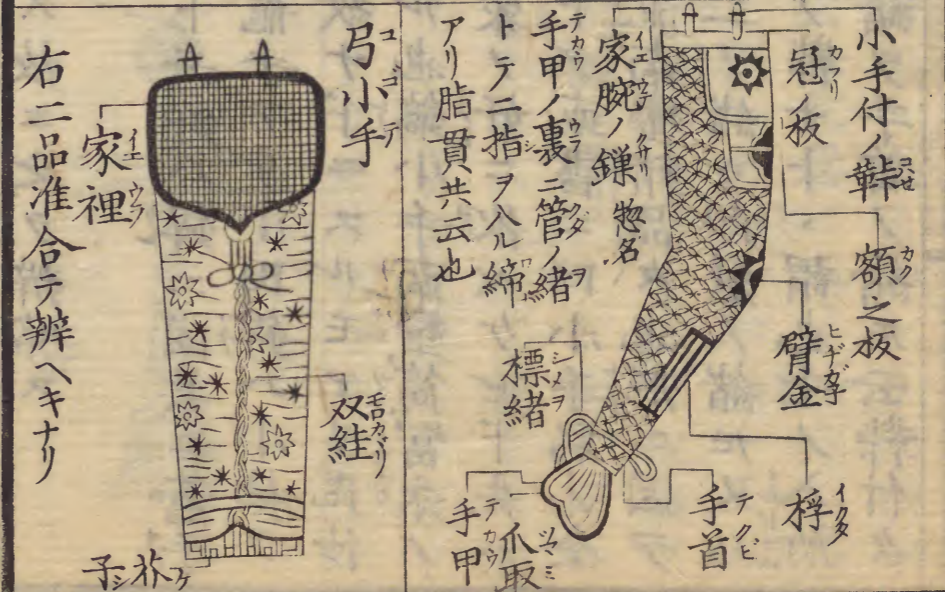 小手付ノ鞐
冠ノ板
額之板
臂金
桴
手首
爪取
手甲
標緒
家腕ノ鏁惣名
手甲ノ裏ニ管ノ緒
トテ二指ヲ入ル締
アリ脂貫共云也
弓小手
家裡
双絓
芥子
右二品准合テ辨ヘキナリ